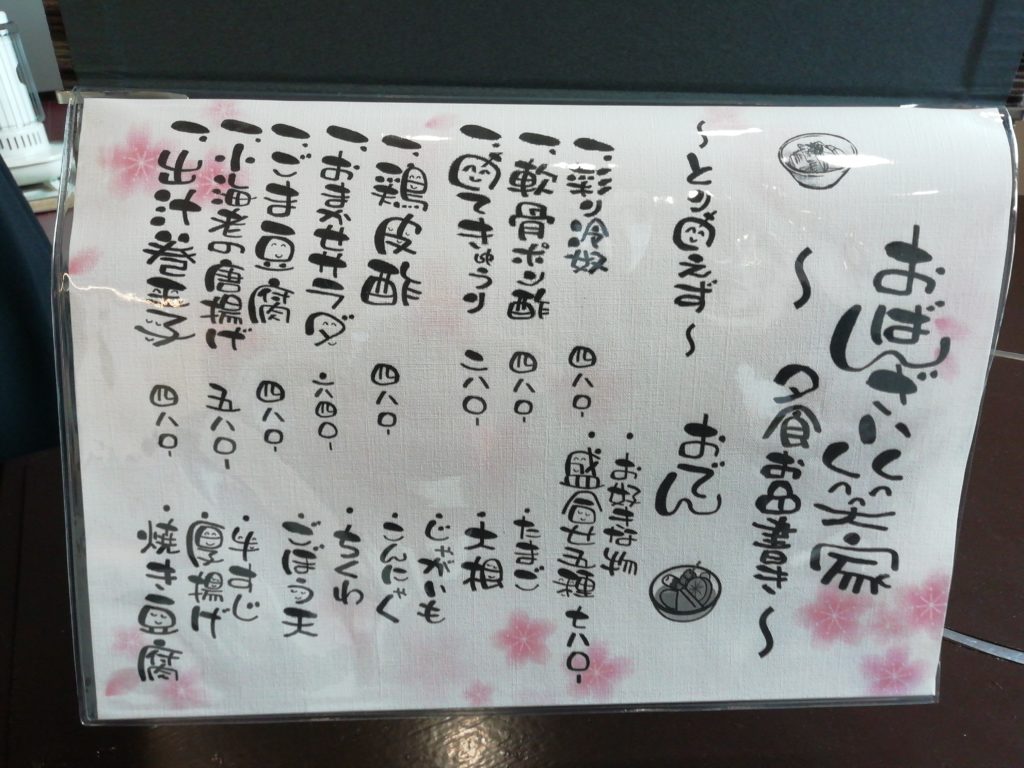 おばんざい 笑家
～夕食お品書き～
～とりあえず～
一、彩り冷奴 四八〇-
一、軟骨ポン酢 四八〇-
一、あてきゅうり 二八〇-
一、鶏皮酢 四八〇-
一、おまかせサラダ 六四〇-
一、ごま豆腐 四八〇-
一、小海老の唐揚げ 五八〇-
一、出汁巻玉子 四八〇-
おでん
・盛合せ五種 七八〇-
・たまご
・大根
・じゃがいも
・こんにゃく
・ちくわ
・ごぼう天
・牛すじ
・厚揚げ
・焼き豆腐